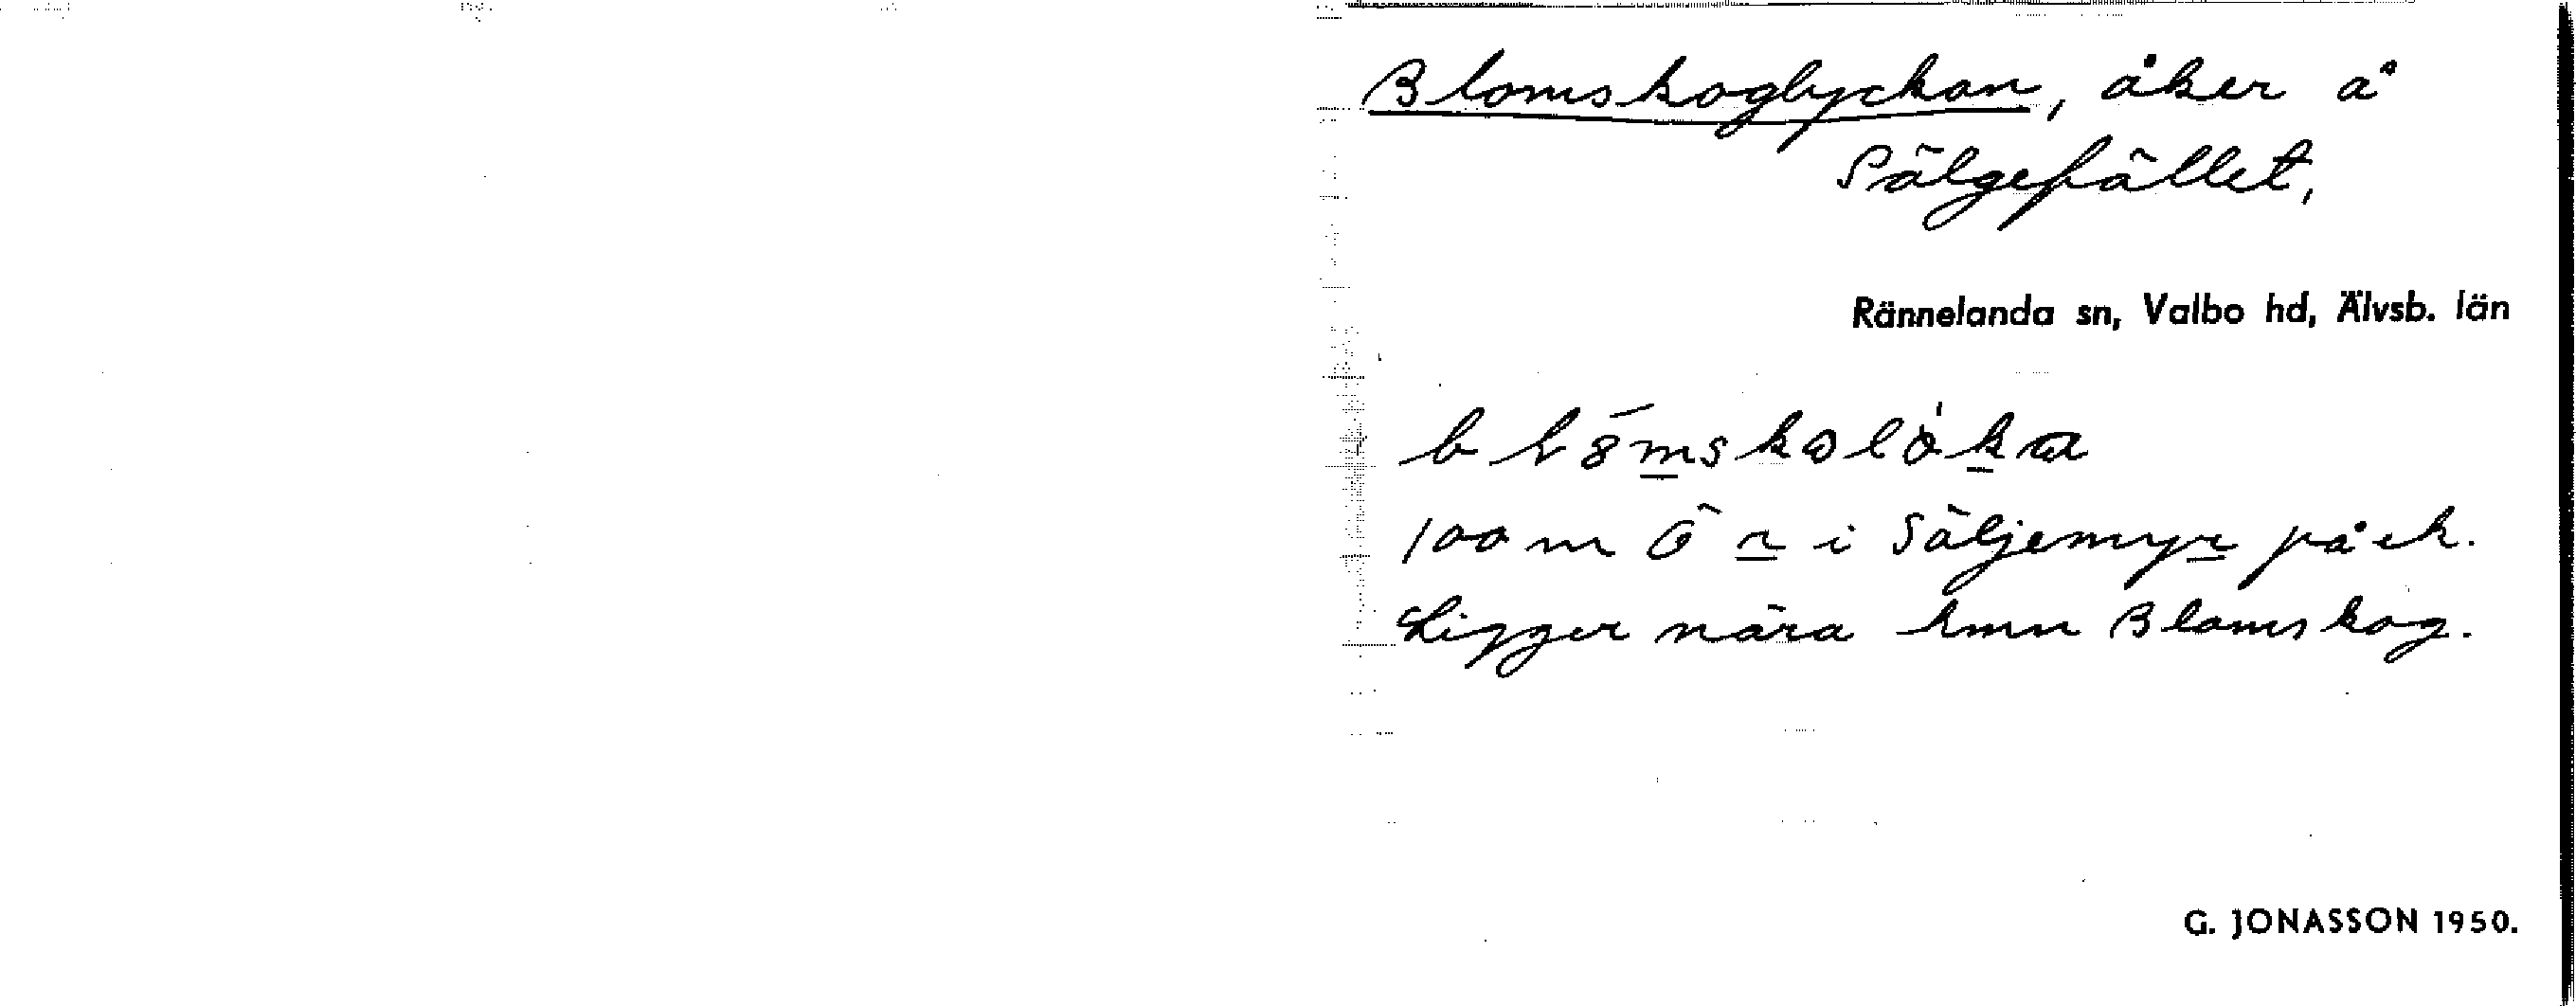 Blomskoglyckan, åker å
Sälgefället,
Rännelanda sn, Valbo hd, Älvsb. län
100 m Ö r i Säljemyr på ek.
Ligger nära hmn Blomskog.
G. JONASSON 1950.